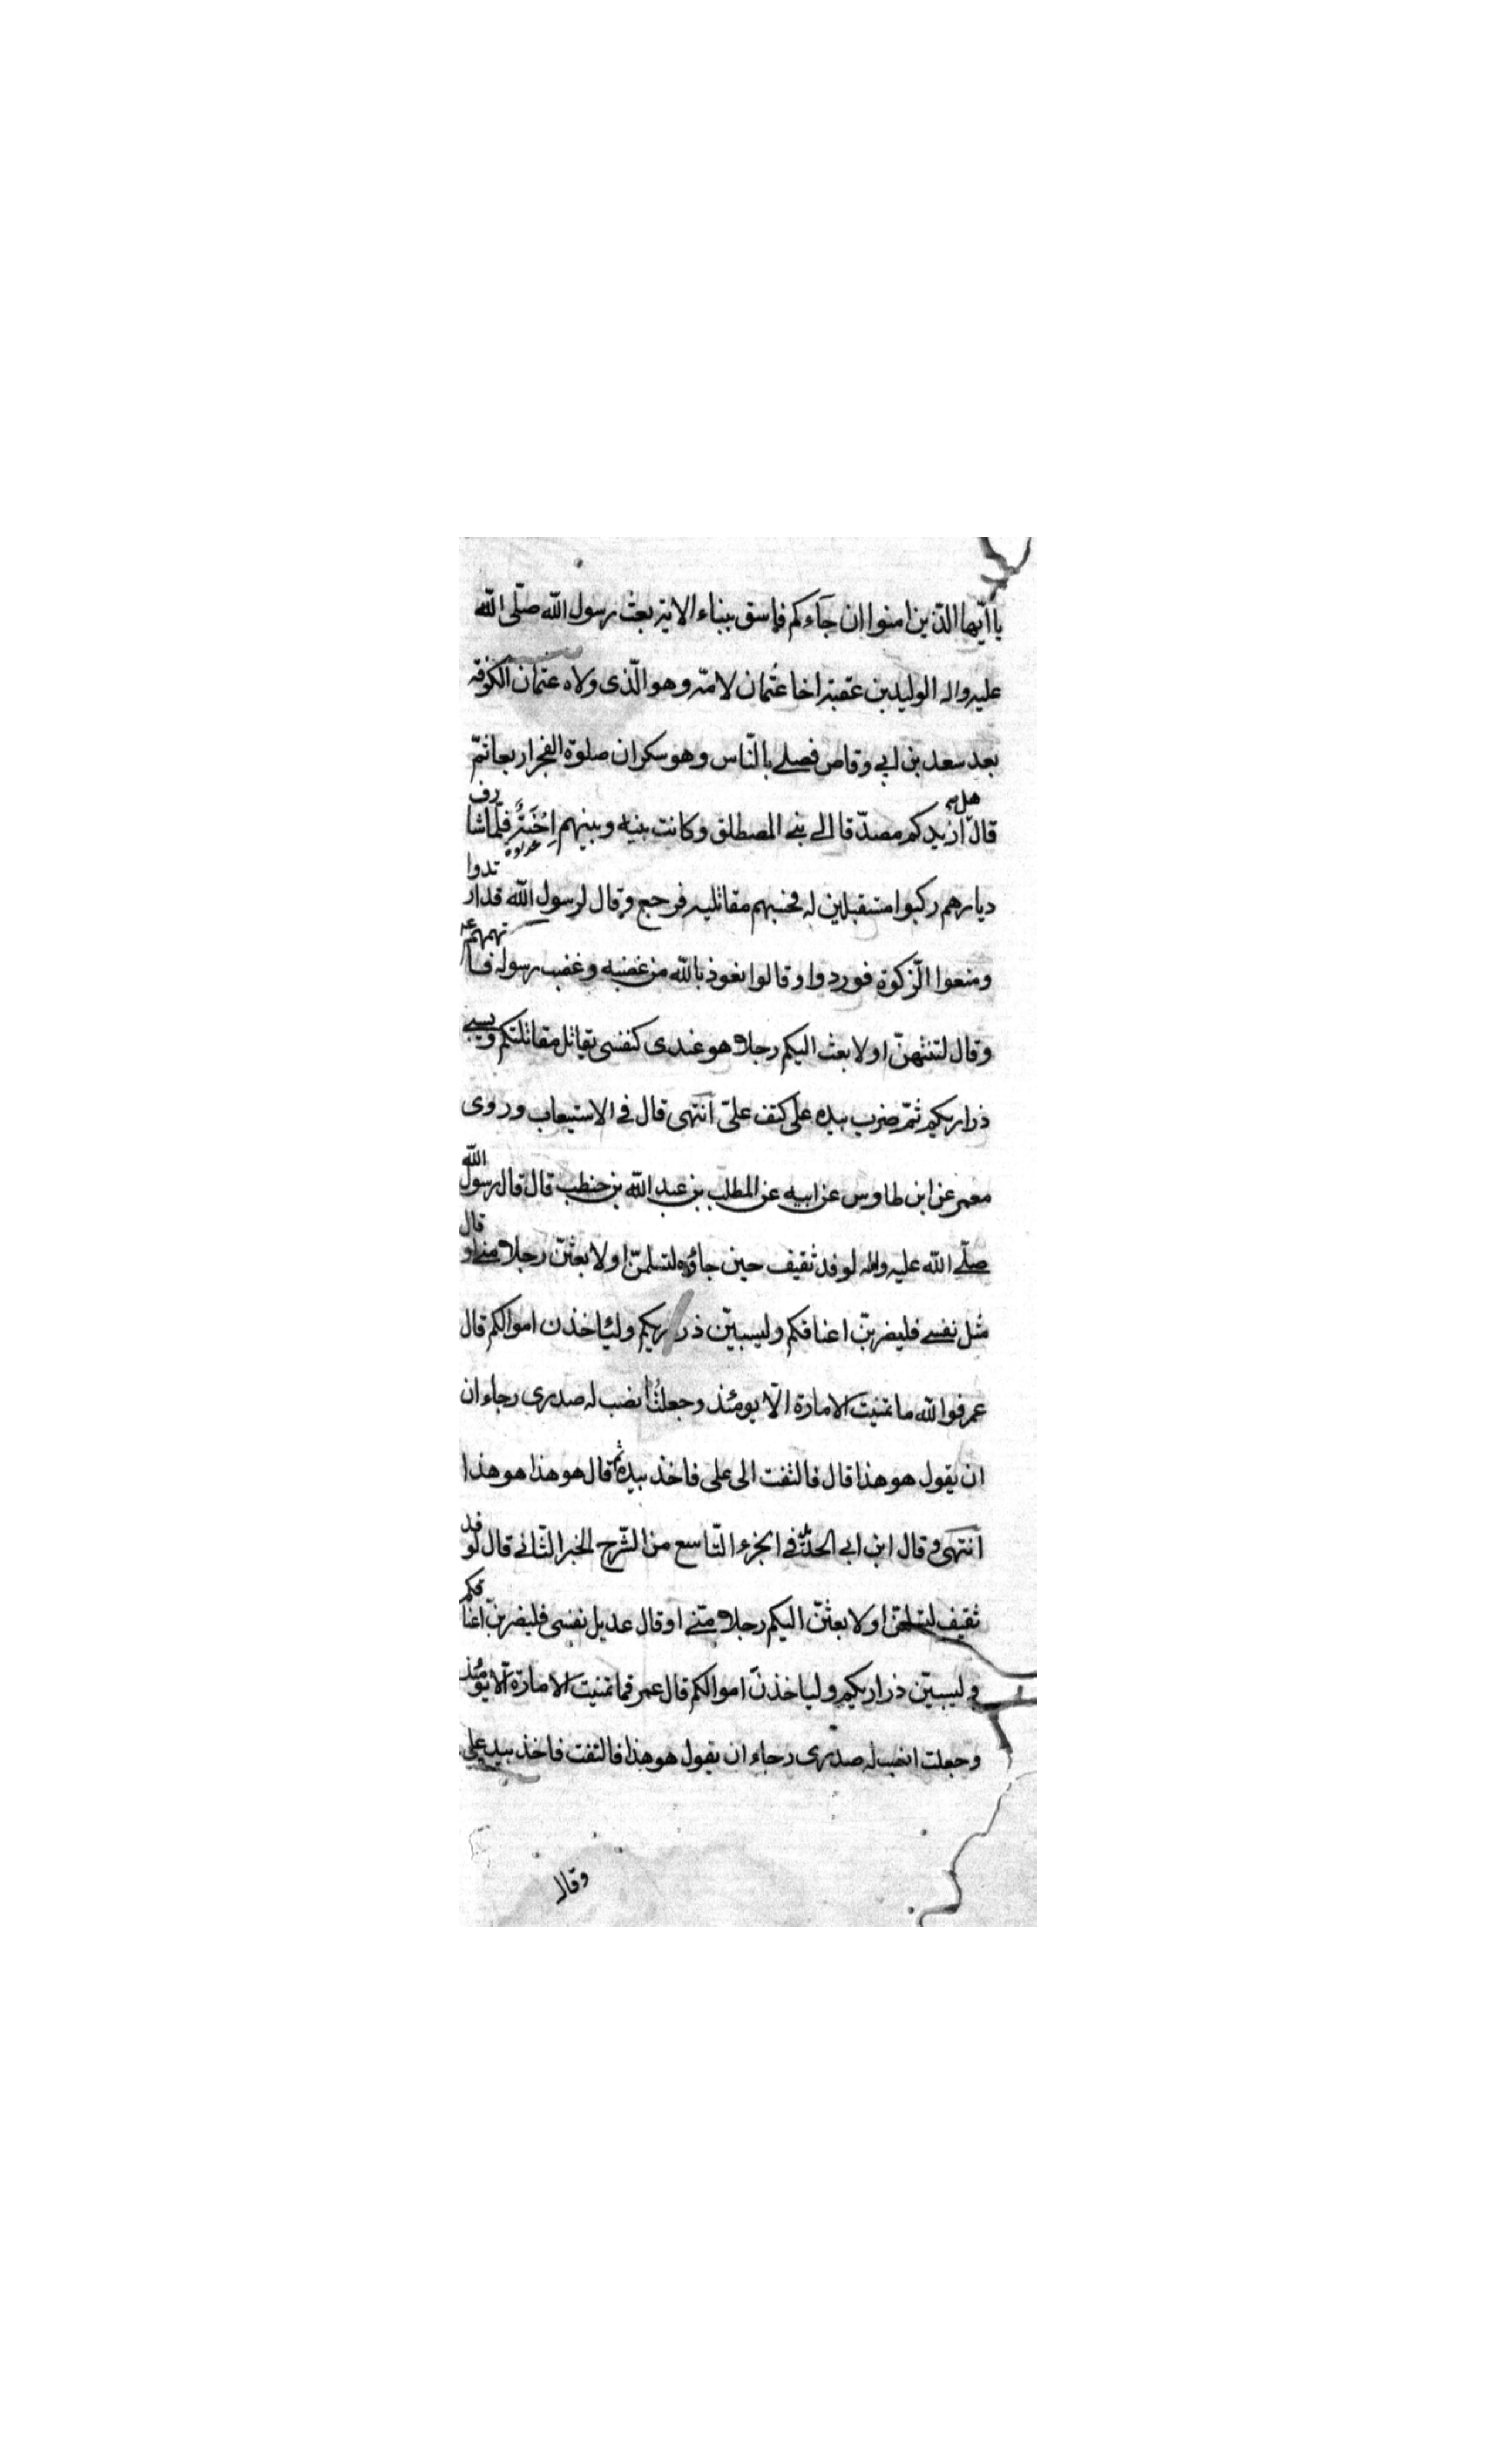 يا ايّها الذين امنوا ان جآءكم فاسق بنباء الاية بعث رسول الله صلّى الله
عليه واله الوليد بن عقبة اخا عثمان لامّه وهو الّذى ولاه عثمان الكوفة
بعد سعد بن ابي وقاص فصلے بالنّاس وهو سكران صلوة الفجر اربعا ثمّ
قال هل ازيدكم مصدّقا الے بنے المصطلق وكانت بينه وبينهم إحْنَةٌ عداوة فلمّا شارف
ديارهم ركبوا مستقبلين له فحسبهم مقاتليه فرجع وقال لرسول الله قد ارتدوا
ومنعوا الزّكوة فوردوا وقالوا نعوذ بالله من غضبه وغضب رسوله فاتهمهم
وقال لتنتهنّ او لابعث اليكم رجلا هو عندى كنفسى يقاتل مقاتلتكم ويسبے
ذراريكم ثمّ ضرب بيده على كتف علىّ انتهى قال فے الاستيعاب وروى
معمر عن ابن طاوس عن ابيه عن المطلب بن عبد الله بن حنطب قال قال رسول الله
صلّے الله عليه واله لوفد ثقيف حين جاؤه لتسلمنّ او لابعثنّ رجلا منے او قال
مثل نفسے فليضربنّ اعناقكم وليسبينّ ذراريكم ولياخذن اموالكم قال
عمر فوالله ما تمنيت الامارة الّا يومئذ وجعلتُ انصب له صدرى رجاء ان
ان يقول هو هذا قال فالتفت الى على فاخذ بيده ثم قال هو هذا هو هذا
انتهى وقال ابن ابي الحديد فى الجزء التّاسع من الشّرح الخبر الثّانے قال لوفد
ثقيف لتسلمنّ او لابعثنّ اليكم رجلا منّے او قال عديل نفسى فليضربنّ اعناقكم
وليسبينّ ذراريكم ولياخذنّ اموالكم قال عمر فما تمنيت الامارة الّا يومئذ
وجعلت انصب له صدرى رجاء ان يقول هو هذا فالتفت فاخذ بيد على
وقال